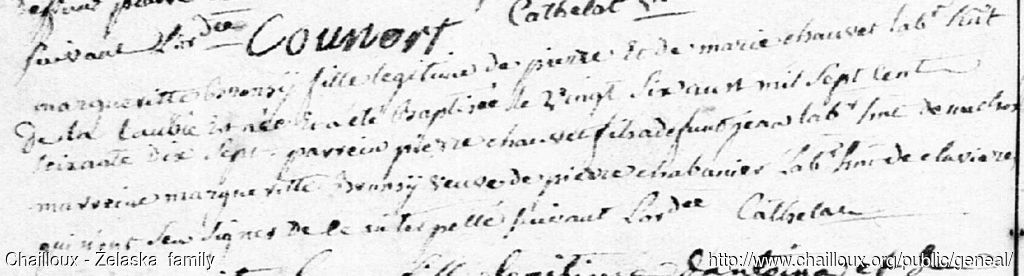 Cathelat
suivant l'ordce Counort
margueritte Bronsy fille legitime de pierre Et de marie chauvet labr hnt
De la Est née Et a été Baptisée le Vingt Six aust mil Sept Cent
soixante Dix Sept. parrein pierre chauvet fils a defunt jean labr hnt de
marreine margueritte Bronsy Veuve de pierre chabanier labr hnt de clavieres
qui n'ont seu signer De ce interpellé suivant l'ordce Cathelat
fille legitime
Chailloux - Želaska family
http://www.chailloux.org/public/geneal/